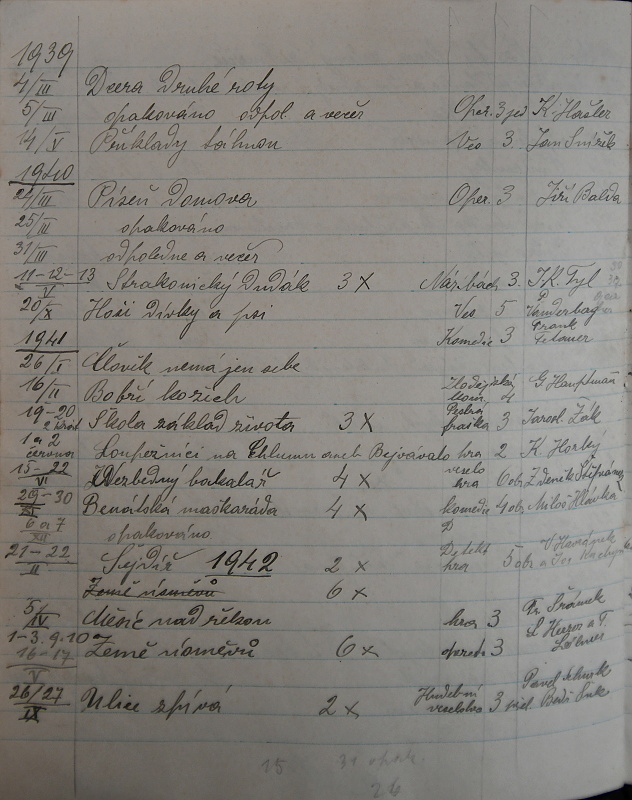 1939
4/III Dcera Druhé roty
5/III opakováno odpol. a večer Oper. 3 jed K. Hašler
14/V Příklady táhnou Ves 3. Jan
1940
24/III Píseň Domova Oper. 3 Jiří Balda
25/III opakováno
31/III odpoledne a večer
11-12-13/V Strakonický Dudák 3 x Nár. 3. J.K. Tyl
20/X Hoši dívky a psi Ves 5
1941 Komedie 3 Frank
26/I Člověk nemá jen sebe
16/II Bobří kožich Zlodějská kom. 4 G Hauptman
19-20 Škola základ života 3 x fraška 3 Jarosl. Žák
1 a 2 června Loupežníci na Chlumu aneb Bejvávalo hra 2 K. Horký
15-22/VI Nezbedný bakalář 4 x veselo hra 6 ob. Zdeněk Štěpánek
29-30 Benátská maškaráda 4 x komedie 4 obr. Miloš Hlávka
6 a 7/XII opakováno
21-22/II Sejdíř 1942 2 x Detekt. hra 5 obr
Země úsměvů 6 x
5/IV Měsíc nad řekou hra 3 Fr. Šrámek
1-3, 9, 10 16-17/V Země úsměvů 6 x opereta 3
26/27/IX Ulice zpívá 2 x Hudební veselohra 3 Pavel
15 31 opak.
26